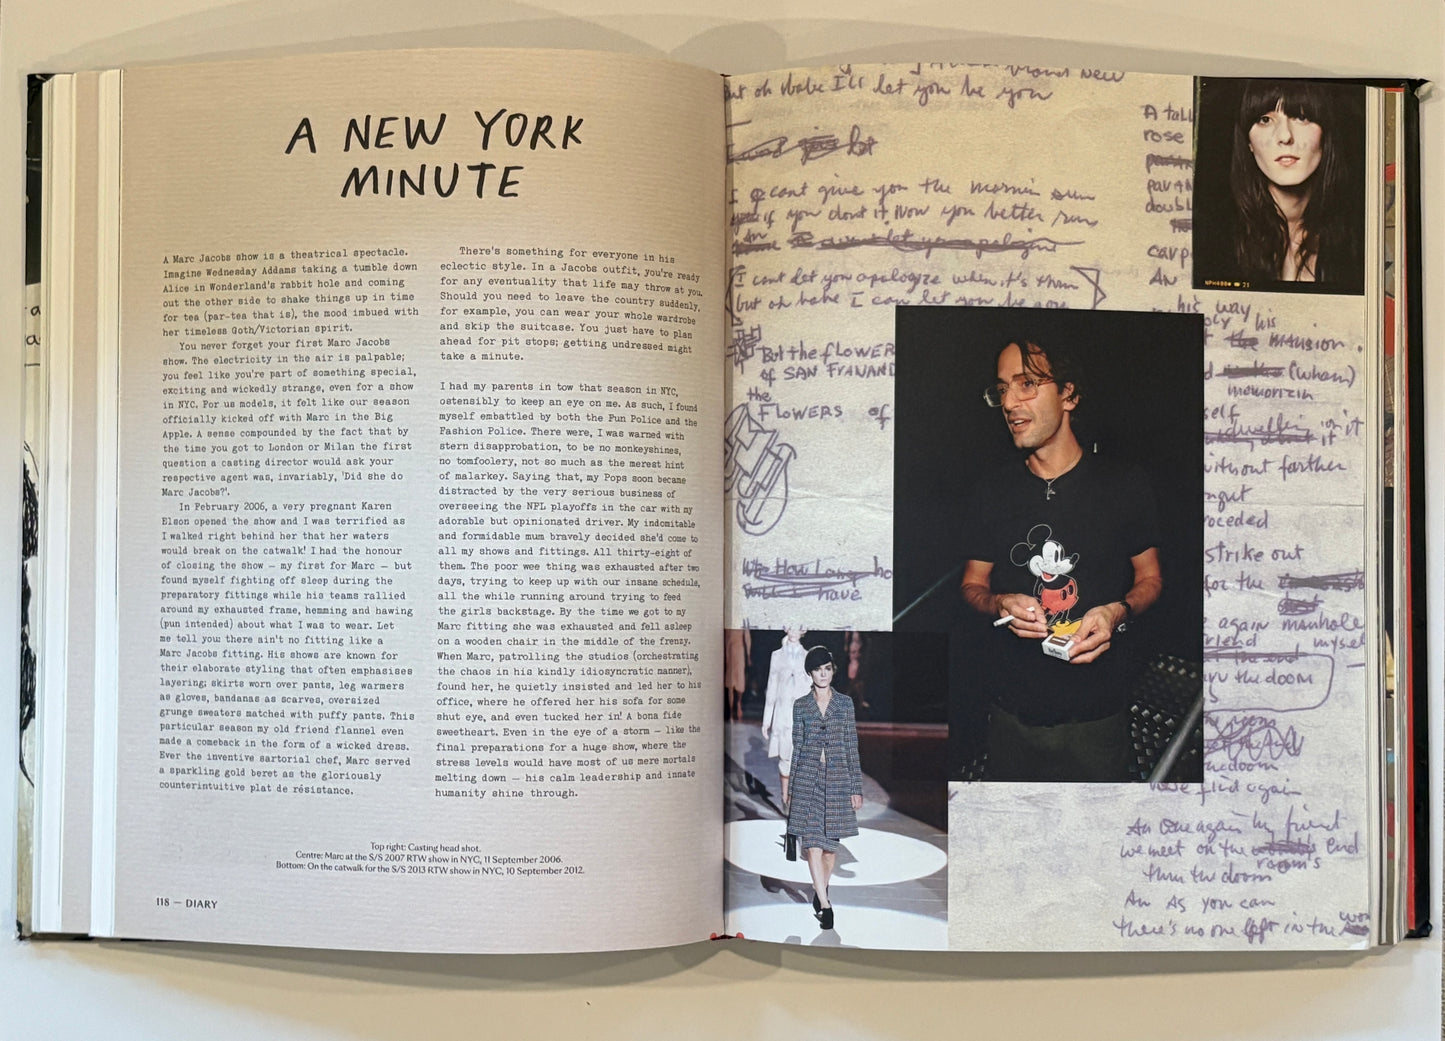 A NEW YORK
MINUTE
A Marc Jacobs show is a theatrical spectacle.
Imagine Wednesday Addams taking a tumble down
Alice in Wonderland's rabbit hole and coming
out the other side to shake things up in time
for tea (par-tea that is), the mood imbued with
her timeless Goth/Victorian spirit.
You never forget your first Marc Jacobs
show. The electricity in the air is palpable;
you feel like you're part of something special,
exciting and wickedly strange, even for a show
in NYC. For us models, it felt like our season
officially kicked off with Marc in the Big
Apple. A sense compounded by the fact that by
the time you got to London or Milan the first
question a casting director would ask your
respective agent was, invariably, 'Did she do
Marc Jacobs?'.
In February 2006, a very pregnant Karen
Elson opened the show and I was terrified as
I walked right behind her that her waters
would break on the catwalk! I had the honour
of closing the show – my first for Marc – but
found myself fighting off sleep during the
preparatory fittings while his teams rallied
around my exhausted frame, hemming and hawing
(pun intended) about what I was to wear. Let
me tell you: there ain't no fitting like a
Marc Jacobs fitting. His shows are known for
their elaborate styling that often emphasises
layering; skirts worn over pants, leg warmers
as gloves, bandanas as scarves, oversized
grunge sweaters matched with puffy pants. This
particular season my old friend flannel even
made a comeback in the form of a wicked dress.
Ever the inventive sartorial chef, Marc served
a sparkling gold beret as the gloriously
counterintuitive plat de résistance.
There's something for everyone in his
eclectic style. In a Jacobs outfit, you're ready
for any eventuality that life may throw at you.
Should you need to leave the country suddenly,
for example, you can wear your whole wardrobe
and skip the suitcase. You just have to plan
ahead for pit stops; getting undressed might
take a minute.
I had my parents in tow that season in NYC,
ostensibly to keep an eye on me. As such, I found
myself embattled by both the Pun Police and the
Fashion Police. There were, I was warned with
stern disapprobation, to be no monkeyshines,
no tomfoolery, not so much as the merest hint
of malarkey. Saying that, my Pops soon became
distracted by the very serious business of
overseeing the NFL playoffs in the car with my
adorable but opinionated driver. My indomitable
and formidable mum bravely decided she'd come to
all my shows and fittings. All thirty-eight of
them. The poor wee thing was exhausted after two
days, trying to keep up with our insane schedule,
all the while running around trying to feed
the girls backstage. By the time we got to my
Marc fitting she was exhausted and fell asleep
on a wooden chair in the middle of the frenzy.
When Marc, patrolling the studios (orchestrating
the chaos in his kindly idiosyncratic manner),
found her, he quietly insisted and led her to his
office, where he offered her his sofa for some
shut eye, and even tucked her in! A bona fide
sweetheart. Even in the eye of a storm – like the
final preparations for a huge show, where the
stress levels would have most of us mere mortals
melting down – his calm leadership and innate
humanity shine through.
Top right: Casting head shot.
Centre: Marc at the S/S 2007 RTW show in NYC, 11 September 2006.
Bottom: On the catwalk for the S/S 2013 RTW show in NYC, 10 September 2012.
118 — DIARY
brand new
but oh babe I'll let you be you
I cant give you the mornin sun
if you dont it. Now you better run
I cant let you apologize when it's thin
but oh babe I can let you be you
But the fLOWER
of SAN FRANAND
the
FLOWERS of
How Long
have
A tall
rose
doubl
carp
An
his way
his
mansion.
(whom)
memorizin
self
it
without farther
roceded
strike out
for the
again manhole
friend
myself
the doom
doom
again
An One again my friend
we meet on the end
room's
thru the doom
An As you can
there's no one left in the